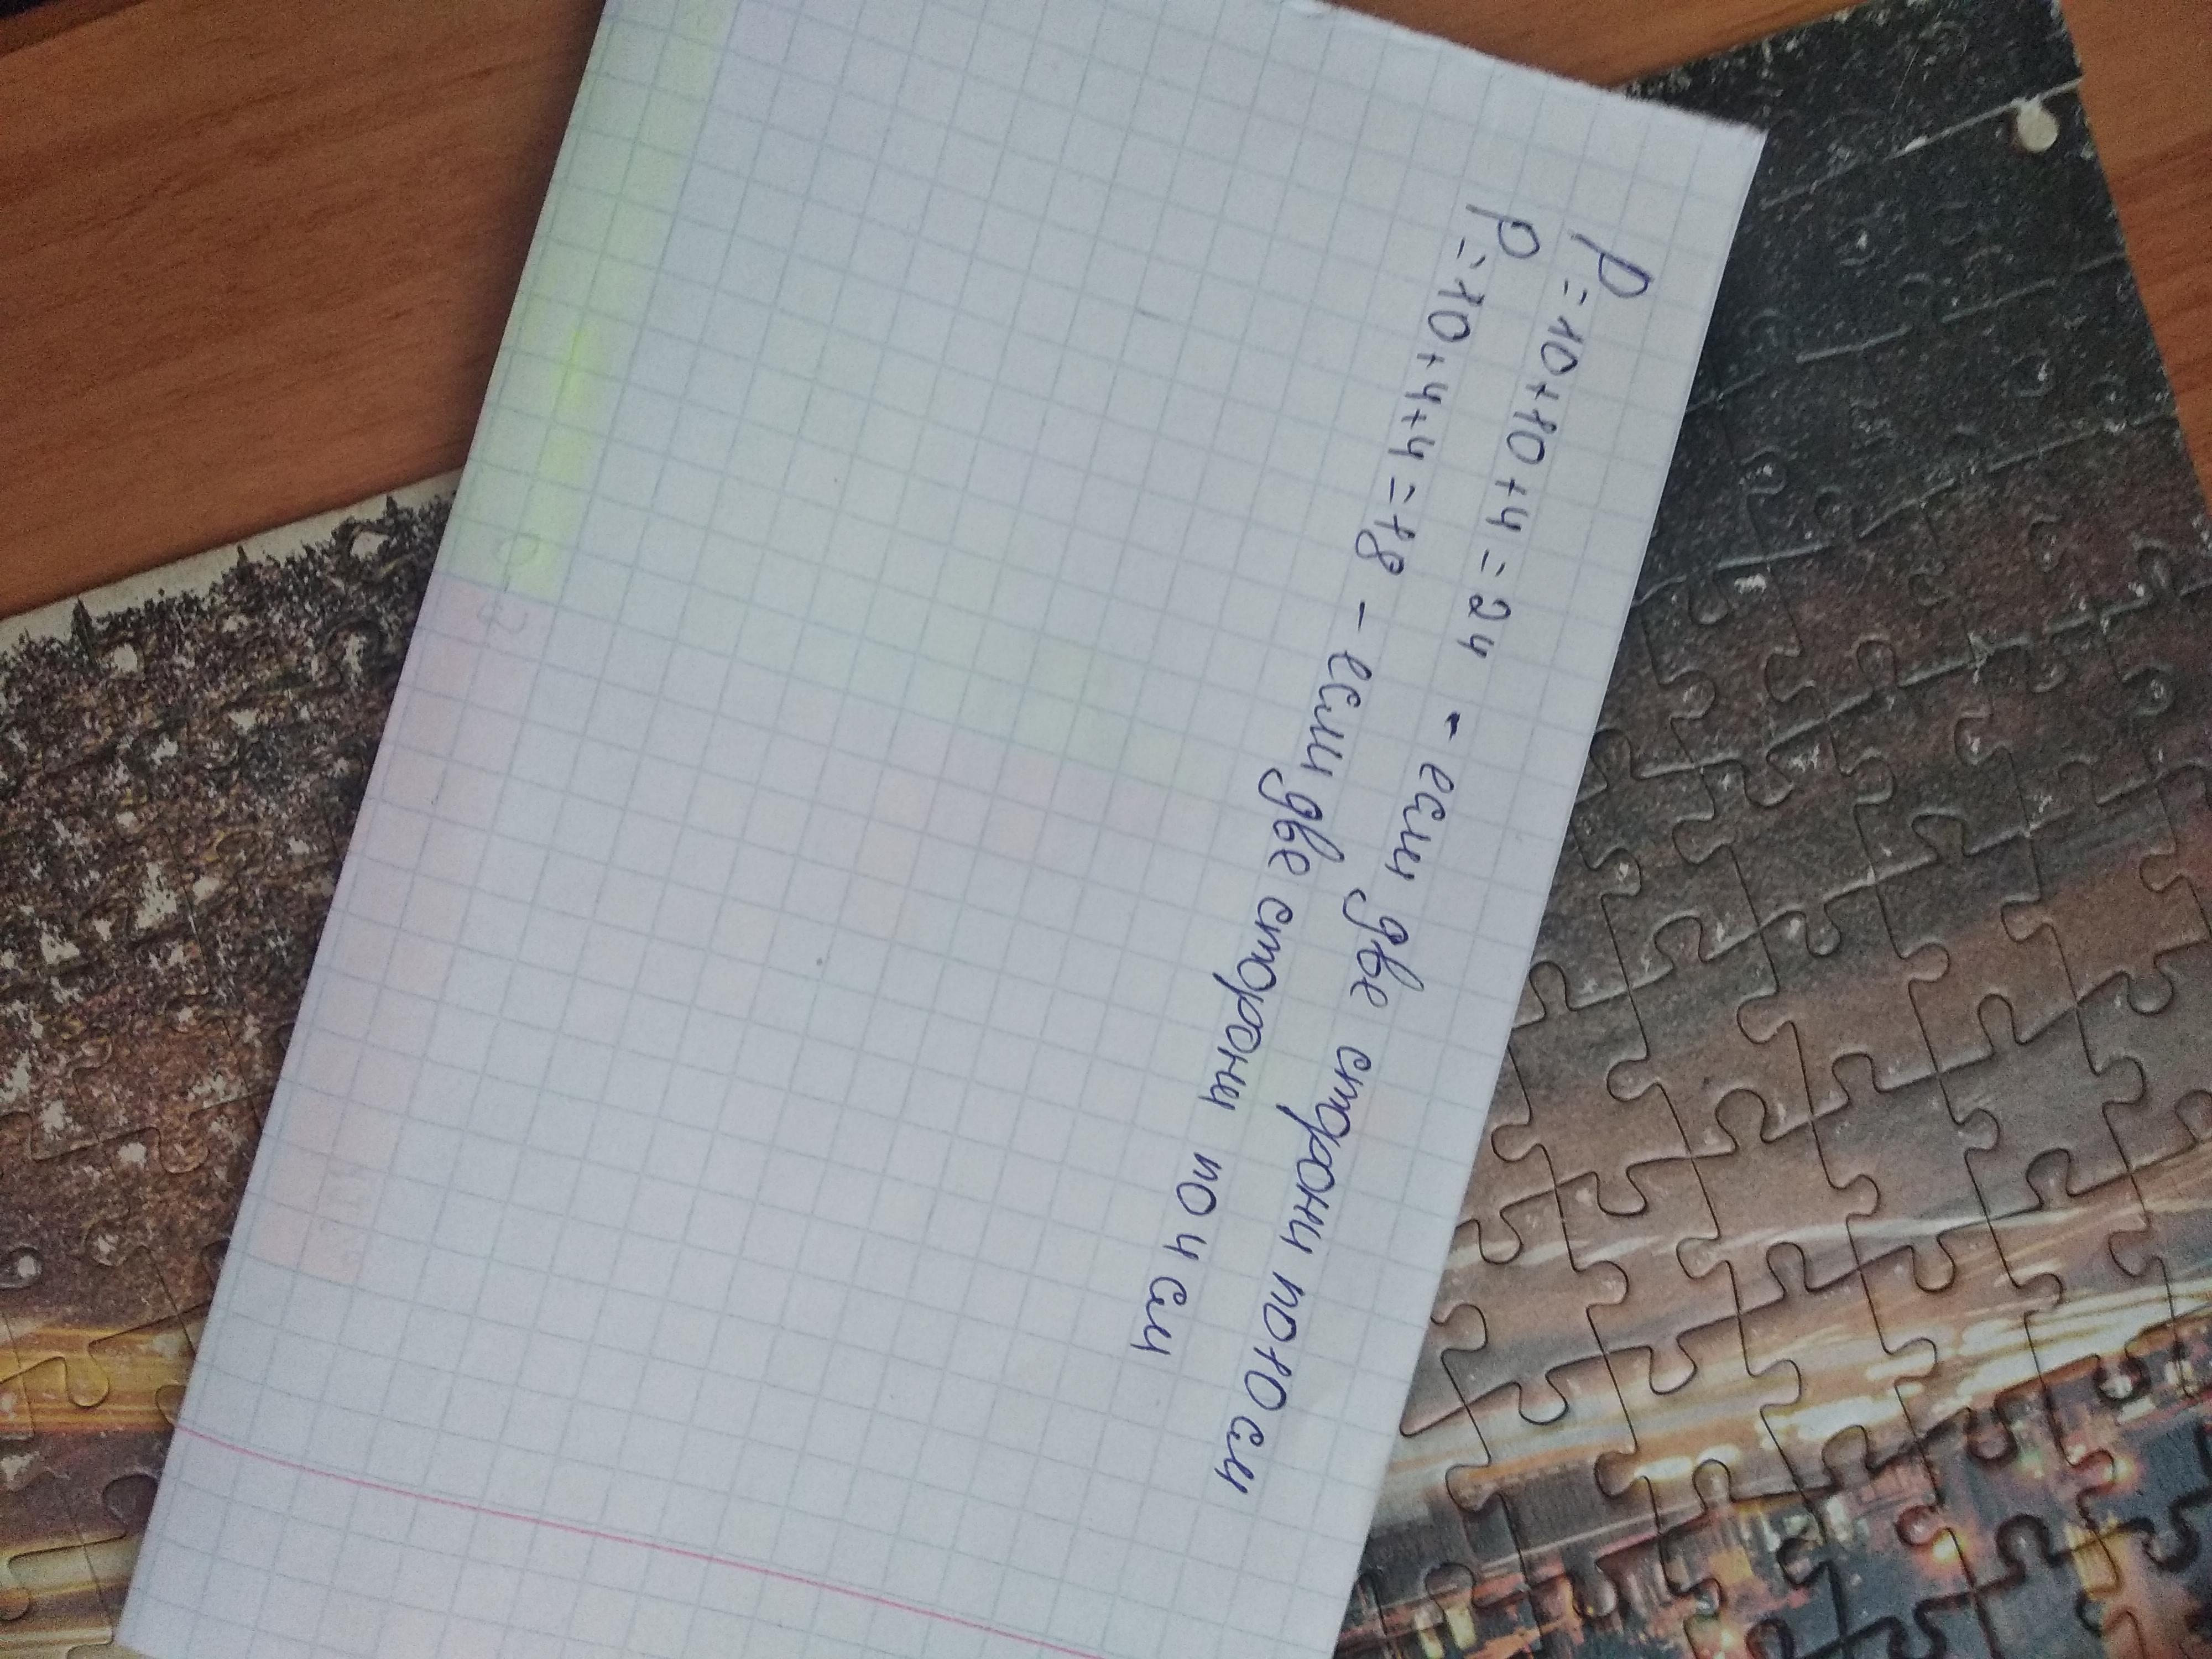 P=10+10+4=24 - если две стороны по 10 см
P=10+4+4=18 - если две стороны по 4 см